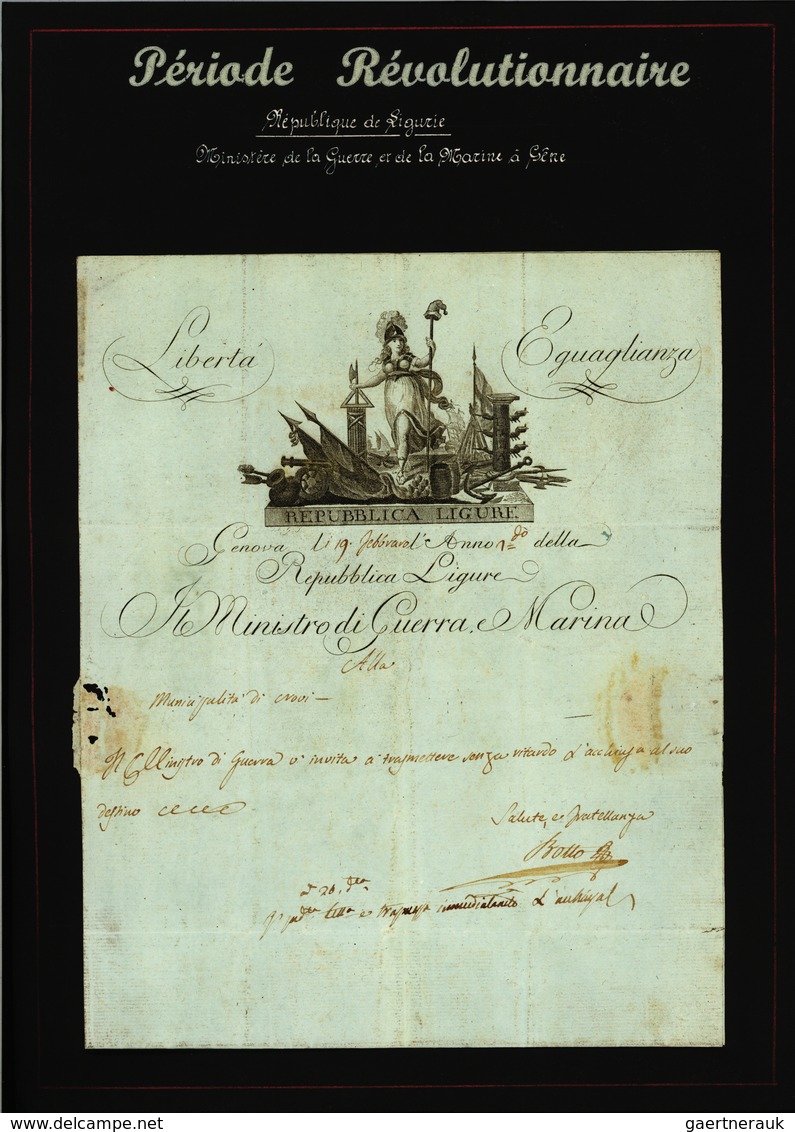 Période Révolutionnaire
République de Ligurie
Ministère de la Guerre et de la Marine à Gêne
Libertà Eguaglianza
REPUBBLICA LIGURE
Genova li 19. febbraro l'Anno 2do della
Repubblica Ligure
Il Ministro di Guerra, e Marina
Alla
Municipalità di Novi
Il Ministro di Guerra v'invita a trasmettere senza ritardo l'acchiusa al suo
destino
Salute, e fratellanza
Botto
a 20. dto
e trasmessa immediatamte l'acchiusa
delcampe.net
gaertnerauk